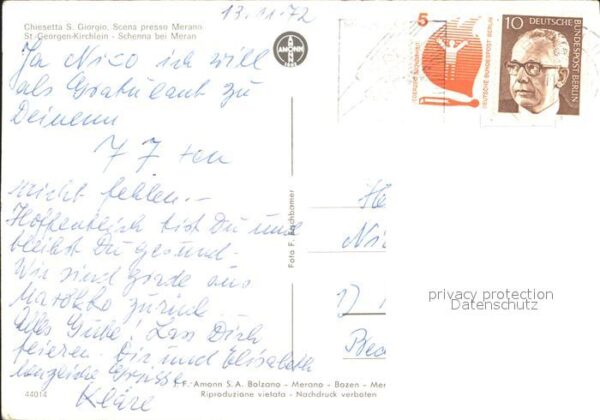 13.11.72
Chiesetta S. Giorgio, Scena presso Merano
St. Georgen-Kirchlein - Schenna bei Meran
AMONN
5
10
DEUTSCHE BUNDESPOST BERLIN
DEUTSCHE BUNDESPOST BERLIN
Ja Nico ich will
als Gratulant zu
Deinem
77 ten
nicht fehlen.-
Hoffentlich bist Du und
bleibst Du gesund.
Wir sind grade aus
Marokko zurück.
Alles Gute! Lass Dich
feiern. Dir und Elisabeth
Grüsse
Kläre
Foto F. Bachbamer
He
Nic
1)
Be
privacy protection
Datenschutz
J. F. Amonn S. A. Bolzano - Merano - Bozen - Mer
Riproduzione vietata - Nachdruck verboten
44014